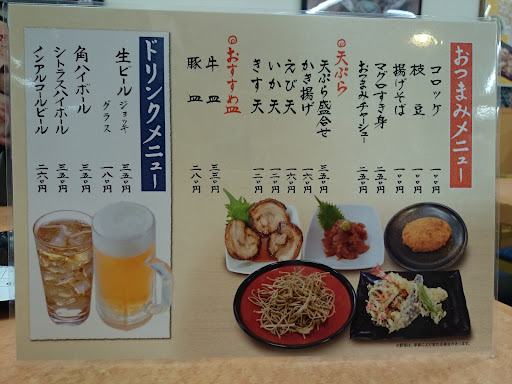 おつまみメニュー
コロッケ 一〇〇
枝豆 一〇〇
揚げそば 一〇〇
マグロすき身 二五〇
おつまみチャーシュー 二五〇
天ぷら
天ぷら盛合せ 三五〇
かき揚げ 一六〇
えび天 一六〇
いか天 一二〇
きす天 一二〇
おすすめ皿
牛皿 三三〇
豚皿 二八〇
ドリンクメニュー
生ビール ジョッキ 三五〇
グラス 一八〇
角ハイボール 三五〇
シトラスハイボール 三五〇
ノンアルコールビール 二六〇